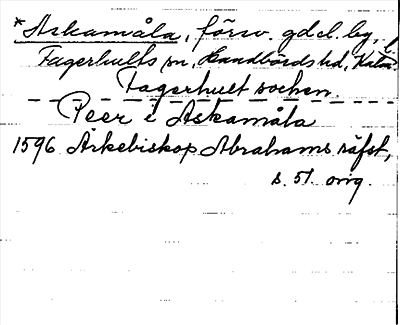 *Askamåla, försv. gd el. by, i
Fagerhults sn, Handbörds hd, Kalm.
Fagerhult socken.
Peer i Askamåla
1596 Ärkebiskop Abrahams räfst,
s. 51. orig.